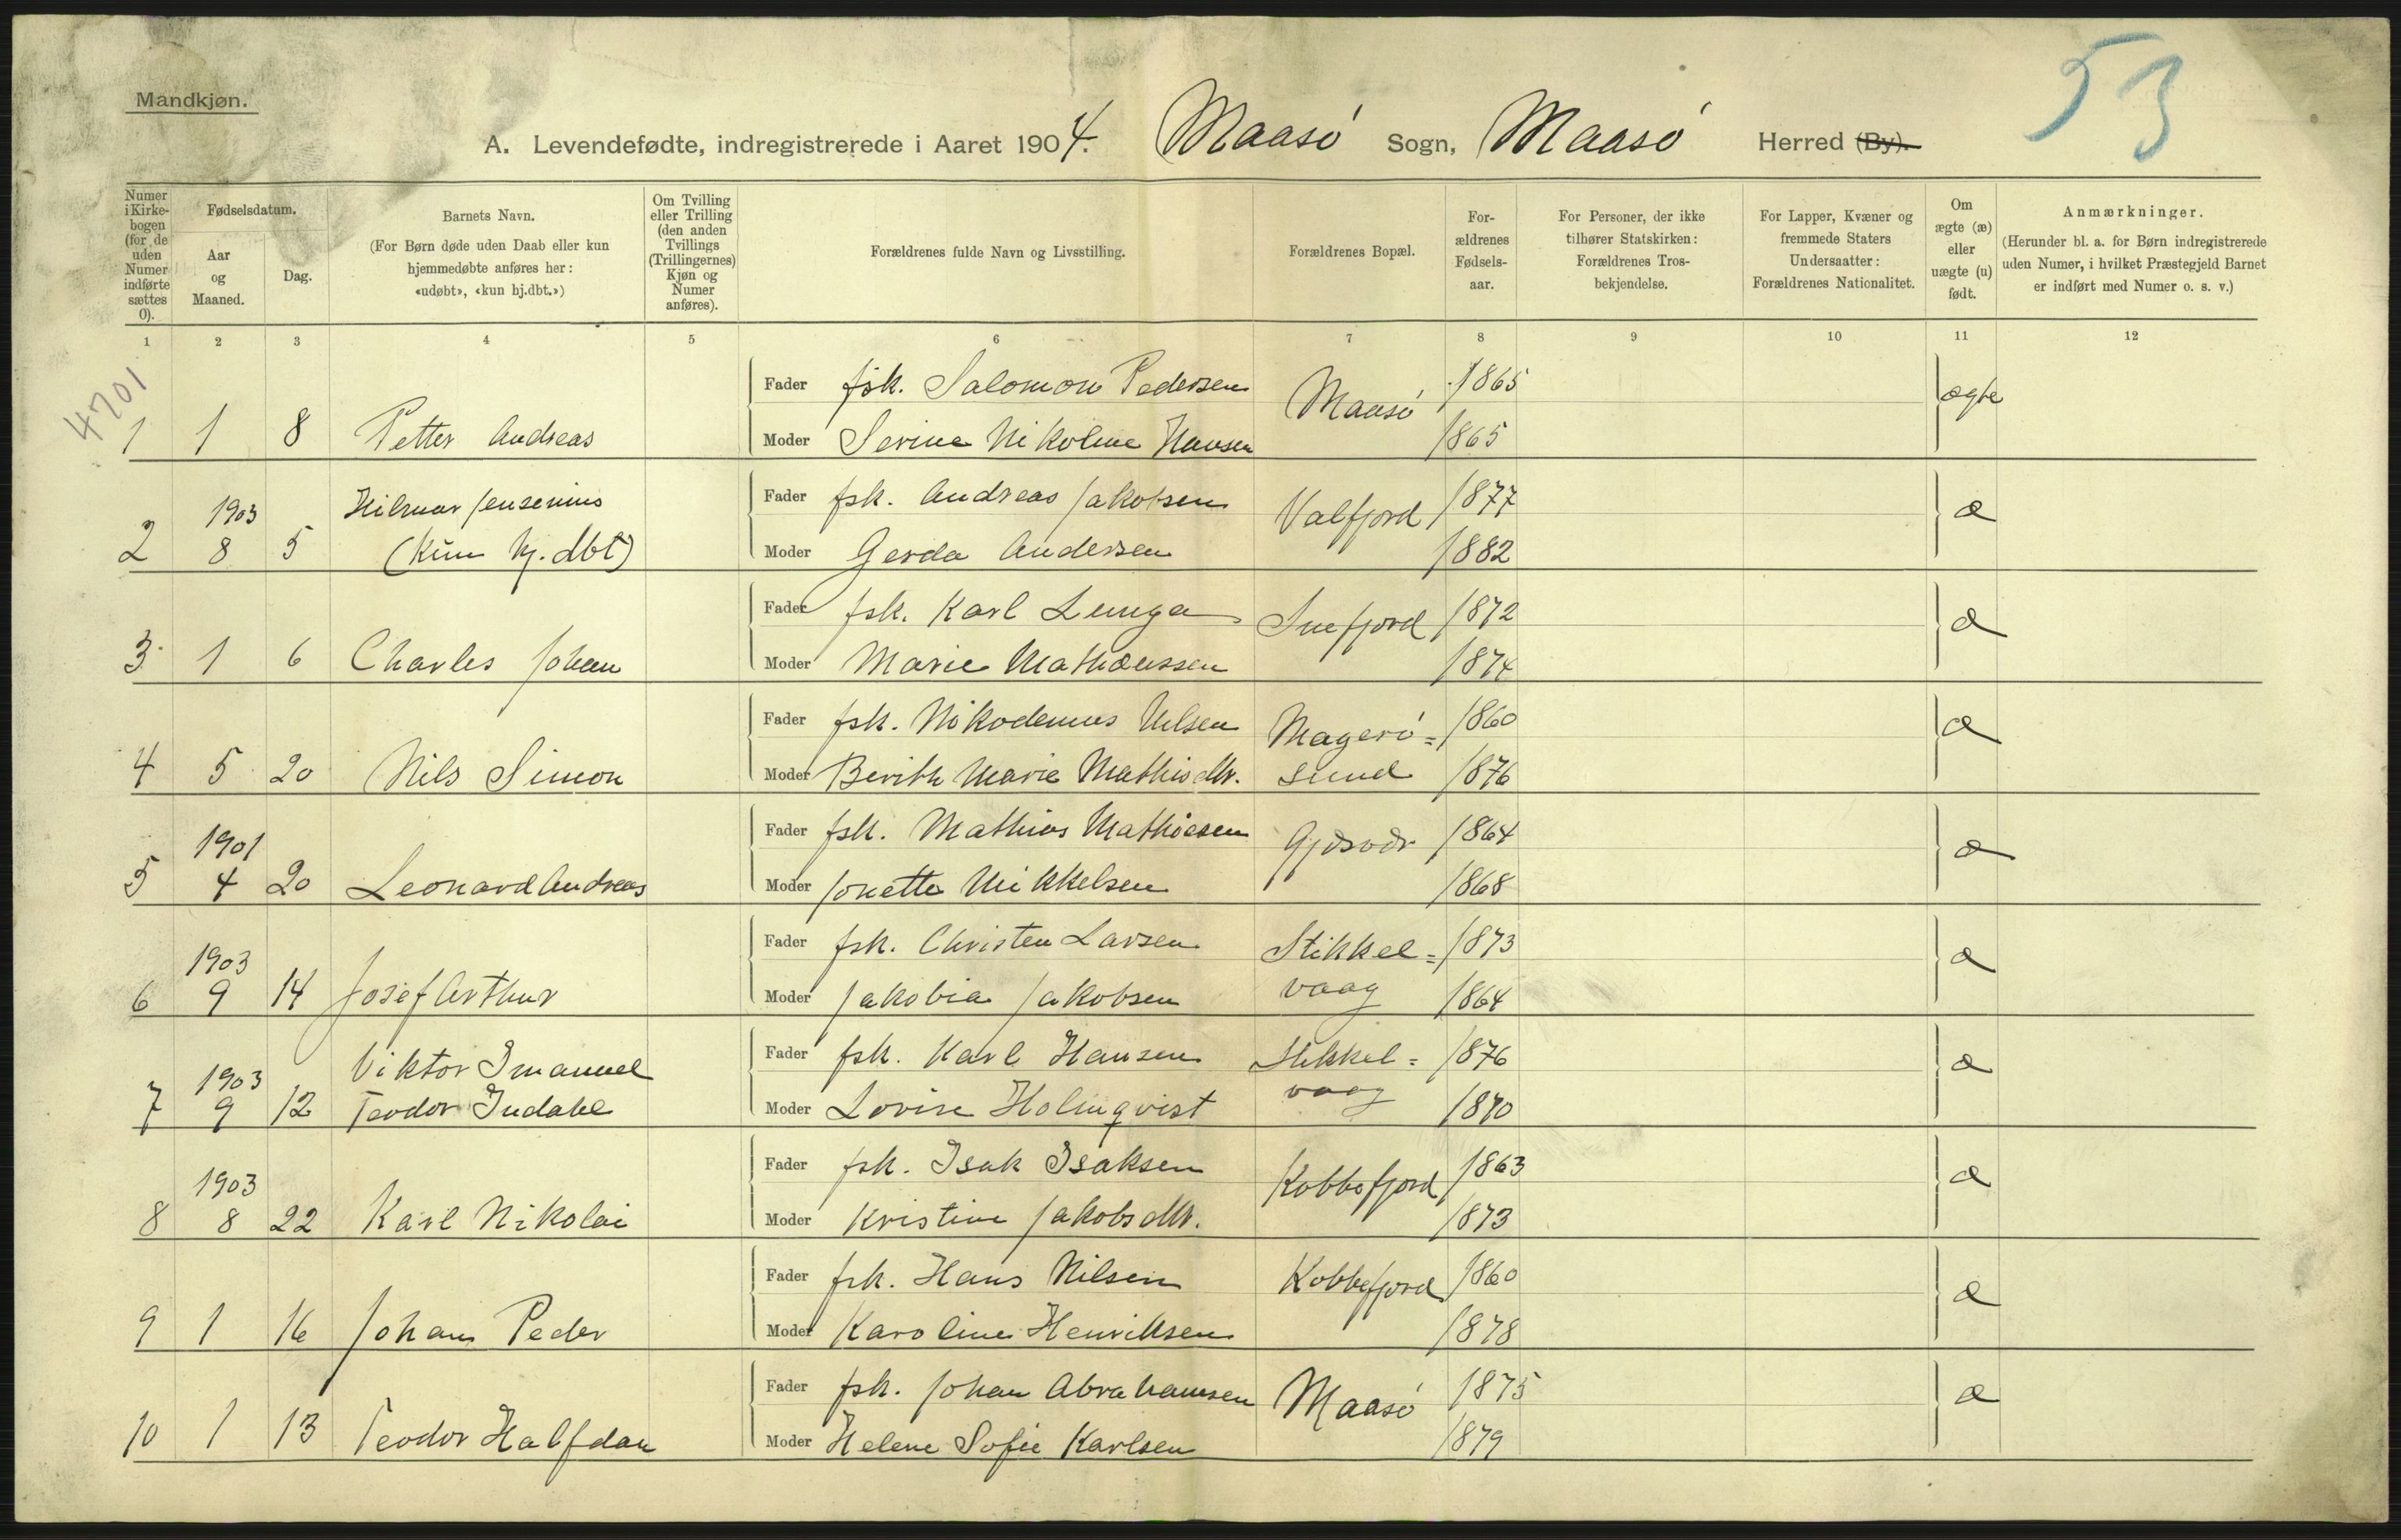 53
Mandkjøn.
A. Levendefødte, indregistrerede i Aaret 1904. Maasø Sogn, Maasø Herred (By).
Numer i Kirkebogen (for de uden Numer indførte sættes 0).
Fødselsdatum.
Aar og Maaned.
Dag.
Barnets Navn.
(For Børn døde uden Daab eller kun hjemmedøbte anføres her: «udøbt», «kun hj.dbt.»)
Om Tvilling eller Trilling (den anden Tvillings (Trillingernes) Kjøn og Numer anføres).
Forældrenes fulde Navn og Livsstilling.
Forældrenes Bopæl.
For-ældrenes Fødsels-aar.
For Personer, der ikke tilhører Statskirken: Forældrenes Tros-bekjendelse.
For Lapper, Kvæner og fremmede Staters Undersaatter: Forældrenes Nationalitet.
Om ægte (æ) eller uægte (u) født.
Anmærkninger.
(Herunder bl. a. for Børn indregistrerede uden Numer, i hvilket Præstegjeld Barnet er indført med Numer o. s. v.)
1 2 3 4 5 6 7 8 9 10 11 12
4701
Fader fsk. Salomon Pedersen Maasø 1865 ægte
1 1 8 Petter Andreas Moder Serine Nikoline Hansen 1865
1903 Hilmar Jensenius Fader fsk. Andreas Jakobsen Valfjord 1877 æ
2 8 5 (kun hj. dbt) Moder Gerda Andersen 1882
Fader fsk. Karl Lunga Snefjord 1872 æ
3 1 6 Charles Johan Moder Marie Mathæussen 1874
Fader fsk. Nikodemus Nilsen Magerø= 1860 æ
4 5 20 Nils Simon Moder Berith Marie Mathisdtr. sund 1876
1901 Fader fsk. Mathias Mathisen Gjæsvær 1864 æ
5 4 20 Leonard Andreas Moder Jonette Mikkelsen 1868
1903 Fader fsk. Christen Larsen Stikkel= 1873 æ
6 9 14 Josef Arthur Moder Jakobia Jakobsen vaag 1864
1903 Viktor Imanuel Fader fsk. Karl Hansen Stikkel= 1876 æ
7 9 12 Teodor Indahl Moder Lovise Holmqvist vaag 1870
1903 Fader fsk. Isak Isaksen Kobbefjord 1863 æ
8 8 22 Karl Nikolai Moder Kristine Jakobsdtr. 1873
Fader fsk. Hans Nilsen Kobbefjord 1860 æ
9 1 16 Johan Peder Moder Karoline Henriksen 1878
Fader fsk. Johan Abrahamsen Maasø 1875 æ
10 1 13 Teodor Halfdan Moder Helene Sofie Karlsen 1879